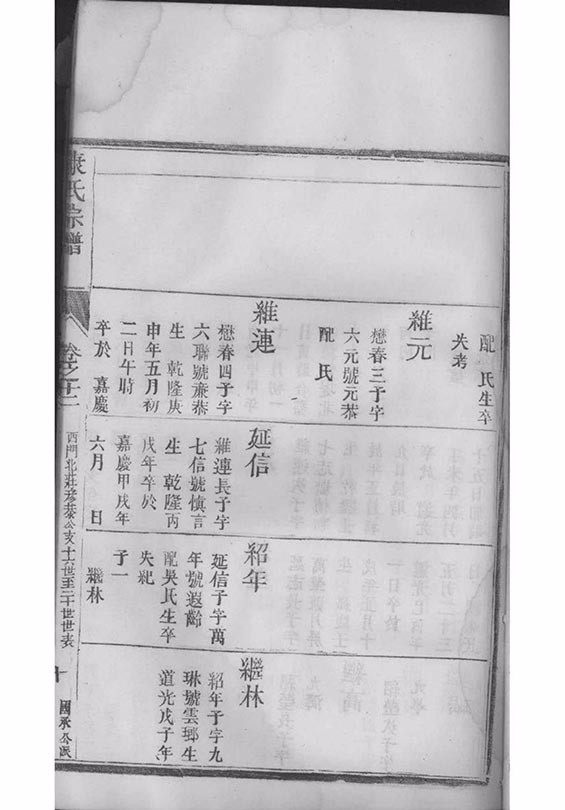 配 氏生卒
失考
維元
懋春三子字
六元號元恭
配 氏
維連
懋春四子字
六聯號兼恭
生 乾隆庚
申年五月初
二日午時
卒於 嘉慶
延信
維連長子字
七信號慎言
生 乾隆丙
戌年卒於
嘉慶甲戌年
六月 日
紹年
延信子字萬
年號遐齡
配吳氏生卒
失紀
子一
繼林
繼林
紹年子字九
琳號雲瑯生
道光戊子年
康氏宗譜
卷之十二
西門北莊珍恭公支十六世至二十世世表
十
國承公派